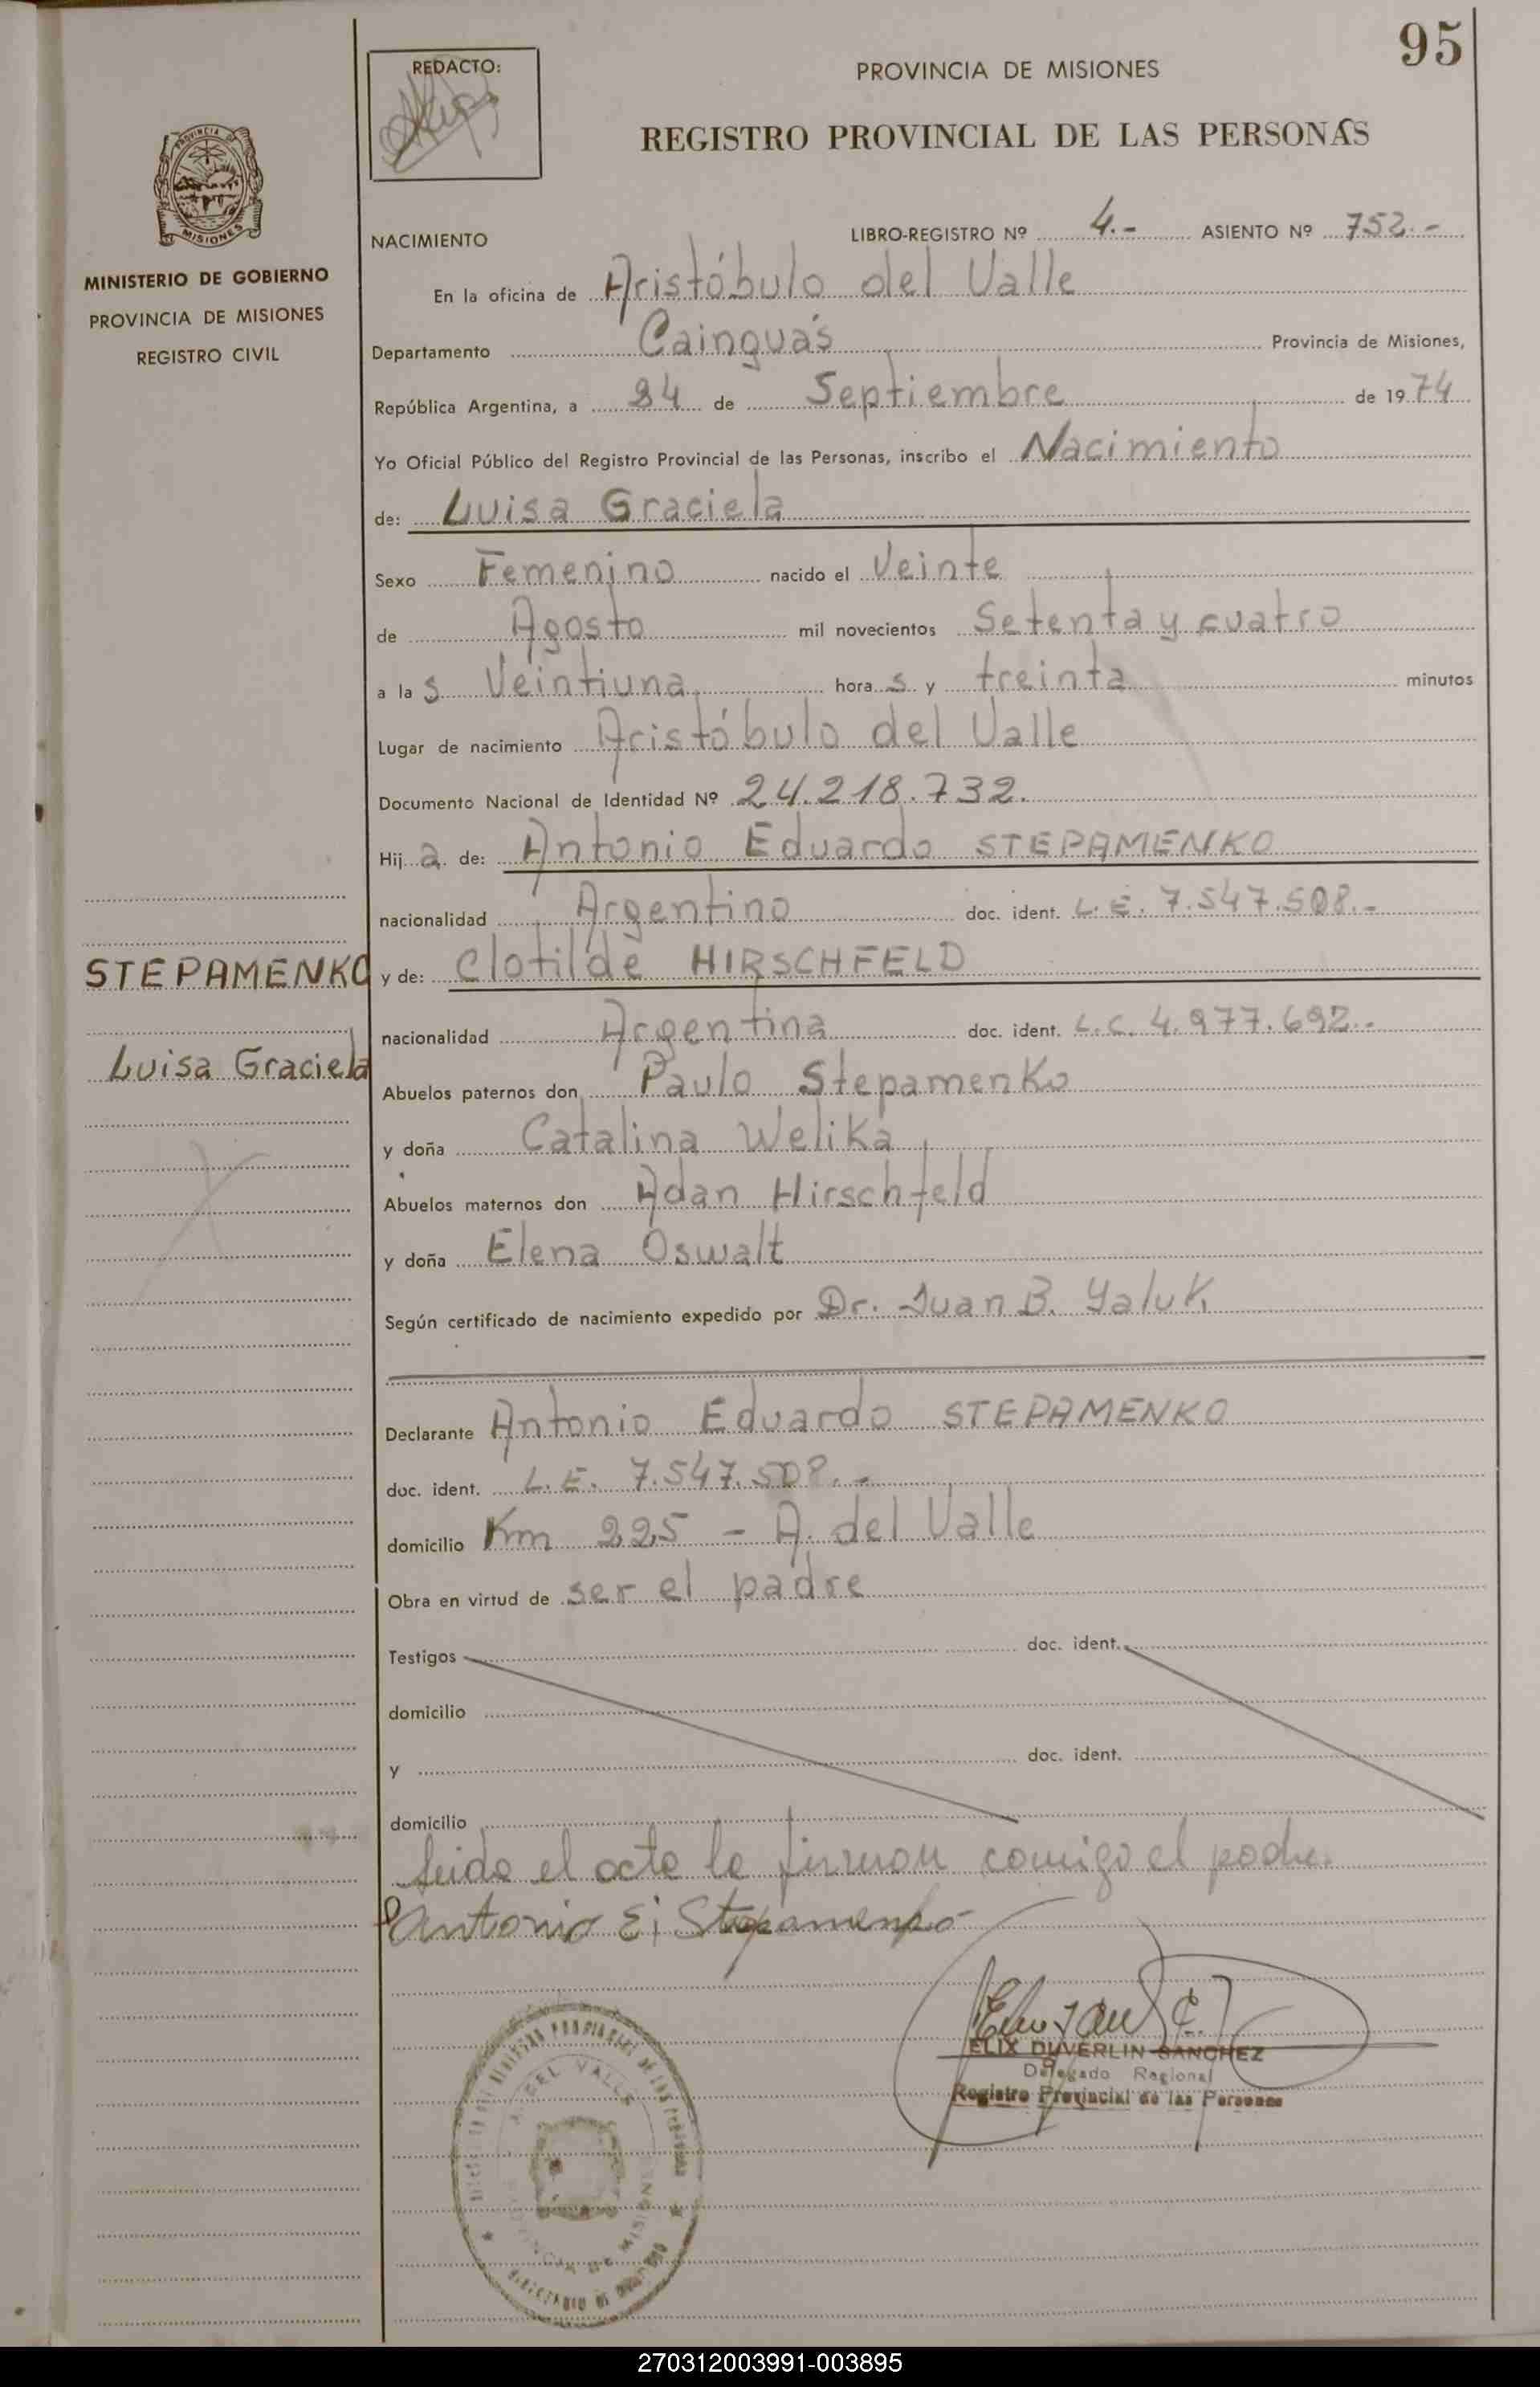 95
REDACTO:
PROVINCIA DE MISIONES
REGISTRO PROVINCIAL DE LAS PERSONAS
PROVINCIA DE
MISIONES
MINISTERIO DE GOBIERNO
PROVINCIA DE MISIONES
REGISTRO CIVIL
NACIMIENTO
LIBRO-REGISTRO Nº 4.- ASIENTO Nº 752.-
En la oficina de Aristóbulo del Valle
Departamento Cainguás Provincia de Misiones,
República Argentina, a 24 de Septiembre de 1974
Yo Oficial Público del Registro Provincial de las Personas, inscribo el Nacimiento
de: Luisa Graciela
Sexo Femenino nacido el Veinte
de Agosto mil novecientos Setenta y cuatro
a la s Veintiuna hora s y treinta minutos
Lugar de nacimiento Aristóbulo del Valle
Documento Nacional de Identidad Nº 24.218.732.
Hij a de: Antonio Eduardo STEPAMENKO
nacionalidad Argentino doc. ident. L.E. 7.547.508.-
STEPAMENKO
y de: Clotilde HIRSCHFELD
nacionalidad Argentina doc. ident. L.C. 4.977.692.-
Luisa Graciela
Abuelos paternos don Paulo Stepamenko
y doña Catalina Welika
Abuelos maternos don Adan Hirschfeld
y doña Elena Oswalt
Según certificado de nacimiento expedido por Dr. Juan B. Yaluk
Declarante Antonio Eduardo STEPAMENKO
doc. ident. L.E. 7.547.508.-
domicilio Km 225 - A. del Valle
Obra en virtud de ser el padre
Testigos doc. ident.
domicilio
y doc. ident.
domicilio
Leida el acta la firman comigo el padre.
Antonio E; Stepamenko
ELIX DUVERLIN SANCHEZ
Delegado Regional
Registro Provincial de las Personas
DEL VALLE
270312003991-003895